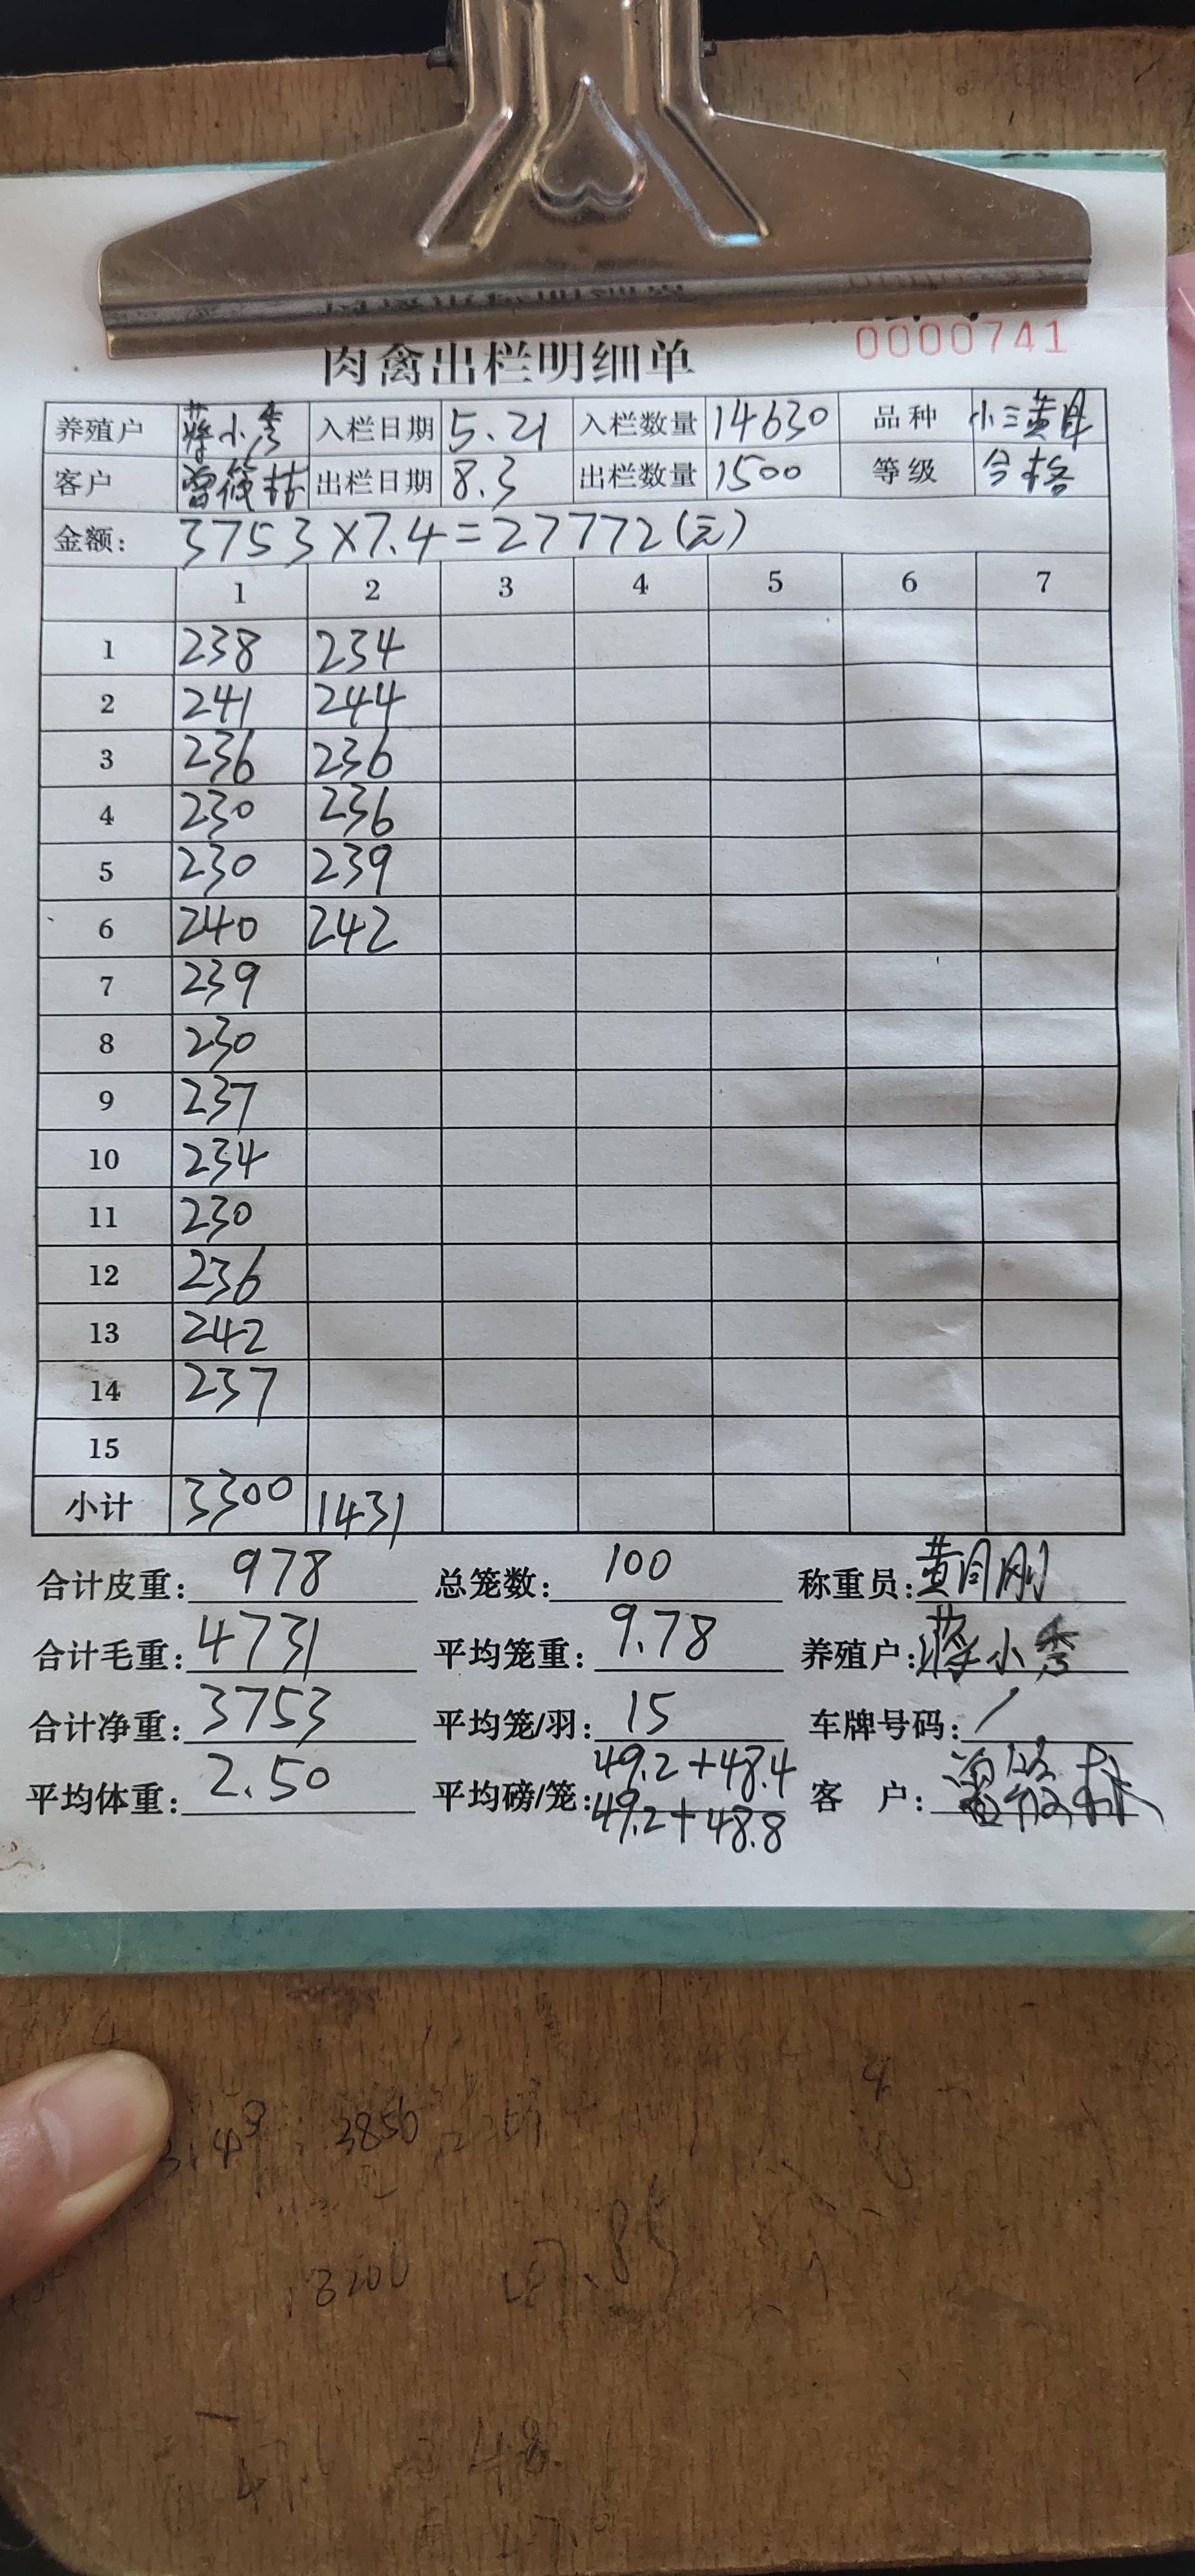 0000741
肉禽出栏明细单
养殖户 蒋小秀 入栏日期 5.21 入栏数量 14630 品种 小三黄母
客户 曾筱林 出栏日期 8.3 出栏数量 1500 等级 合格
金额: 3753×7.4=27772(元)
1 2 3 4 5 6 7
1 238 234
2 241 244
3 236 236
4 230 236
5 230 239
6 240 242
7 239
8 230
9 237
10 234
11 230
12 236
13 242
14 237
15
小计 3300 1431
合计皮重: 978 总笼数: 100 称重员: 黄同刚
合计毛重: 4731 平均笼重: 9.78 养殖户: 蒋小秀
合计净重: 3753 平均笼/羽: 15 车牌号码: /
平均体重: 2.50 平均磅/笼: 49.2+48.4 客户:
49.2+48.8
3850